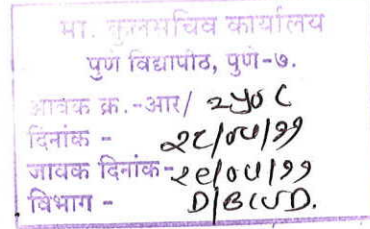 मा. कुलसचिव कार्यालय
पुणे विद्यापीठ, पुणे-७.
आवक क्र.-आर/ २५०८
दिनांक - २८/०५/११
जावक दिनांक-२८/०५/११
विभाग - D/BCUD.